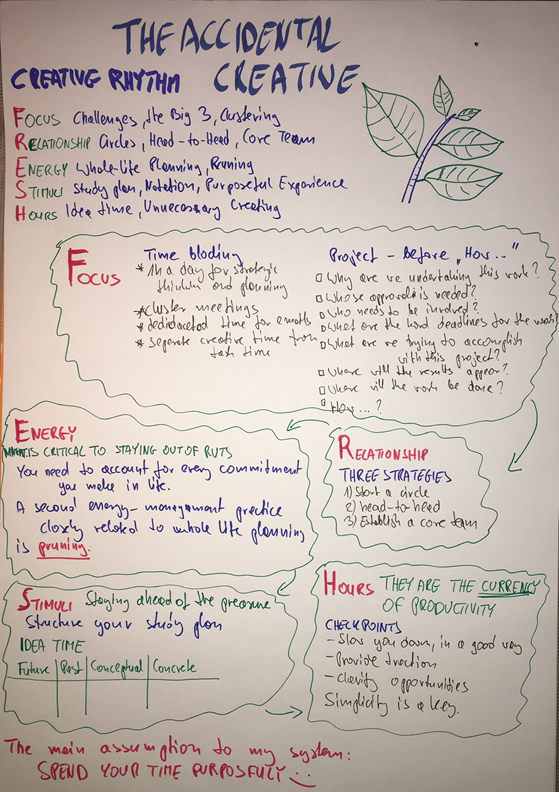 THE ACCIDENTAL
CREATIVE
CREATIVE RHYTHM
FOCUS Challenges, the Big 3, Clustering
RELATIONSHIP Circles, Head-to-Head, Core Team
ENERGY Whole-life Planning, Pruning
STIMULI Study plan, Notation, Purposeful Experience
HOURS Idea time, Unnecessary Creating
FOCUS
Time blocking
* 1h a day for strategic
thinking and planning
* cluster meetings
* dedidacated time for emails
* separate creative time from
task time
Project - before "How.."
Why are we undertaking this work?
Whose approval is needed?
Who needs to be involved?
What are the hard deadlines for the work
What are we trying to accomplish
with this project?
Where will the results appear?
Where will the work be done?
How...?
ENERGY
IS CRITICAL TO STAYING OUT OF RUTS
You need to account for every commitment
you make in life.
A second energy-management practice
closely related to whole life planning
is pruning.
RELATIONSHIP
THREE STRATEGIES
1) Start a circle
2) head-to-head
3) Establish a core team
STIMULI Staying ahead of the pressure
Structure your study plan
IDEA TIME
Future | Past | Conceptual | Concrete
HOURS THEY ARE THE CURRENCY
OF PRODUCTIVITY
CHECKPOINTS
- Slow you down, in a good way
- Provide traction
- Clarify opportunities
Simplicity is a key.
The main assumption to my system:
SPEND YOUR TIME PURPOSFULLY